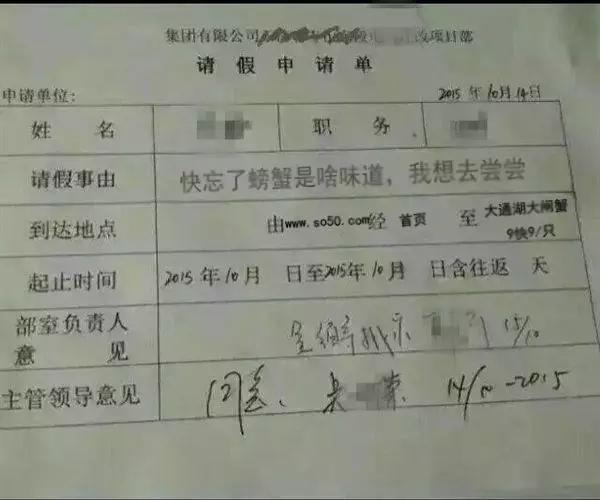 集团有限公司 改项目部
请假申请单
申请单位: 2015年10月14日
姓名 职务
请假事由 快忘了螃蟹是啥味道，我想去尝尝
到达地点 由www.so50.com经 首页 至 大通湖大闸蟹
9快9/只
起止时间 2015年10月 日至2015年10月 日含往返 天
部室负责人
意见 呈领导批示 15/10
主管领导意见 同意. 14/10-2015